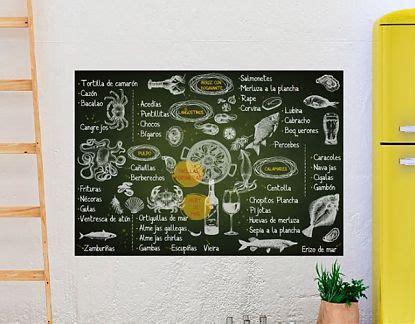 · Tortilla de camarón
· Cazón
· Bacalao
Cangrejos
· Acedías
· Puntillitas
· Chocos
· Bígaros
ARROZ CON
BOGAVANTE
LANGOSTINOS
· Salmonetes
· Merluza a la plancha
· Rape
· Corvina
· Lubina
· Cabracho
· Boquerones
· Percebes
PULPO
· Cañaíllas
· Berberechos
CALAMARES
· Centolla
· Caracoles
· Navajas
· Cigalas
· Gambón
· Frituras
· Nécoras
· Gulas
· Ventresca de atún
· Zamburiñas
· Ortiguillas de mar
· Almejas gallegas
· Almejas chirlas
· Gambas · Escupiñas Vieira
· Chopitos Plancha
· Pijotas
· Huevas de merluza
· Sepia a la plancha
Erizo de mar